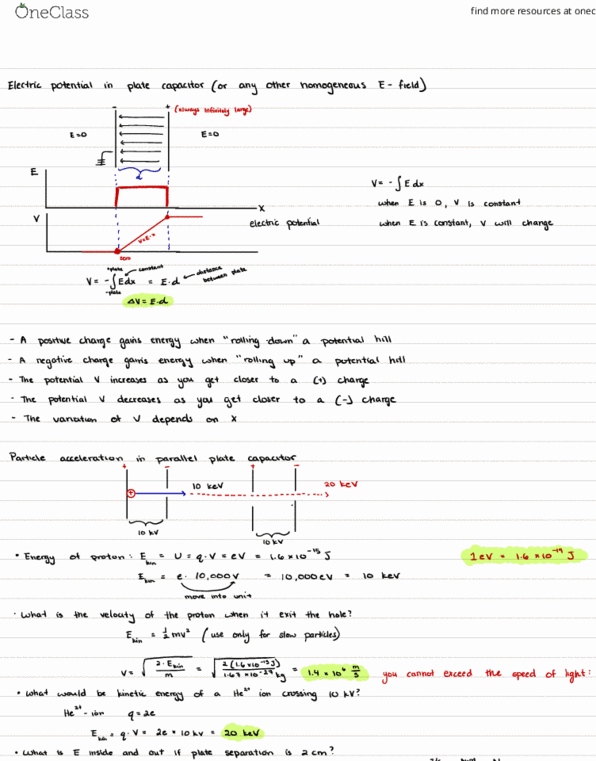 OneClass
find more resources at onec
Electric potential in plate capacitor (or any other homogeneous E-field)
- +
(always infinitely large)
E=0
E=0
d
E
x
V
V=E·x
zero
electric potential
V = -∫E dx
when E is 0, V is constant
when E is constant, V will change
+plate constant
V = -∫Edx = E·d distance between plate
-plate
ΔV = E·d
- A positive charge gains energy when "rolling down" a potential hill
- A negative charge gains energy when "rolling up" a potential hill
- The potential V increases as you get closer to a (+) charge
- The potential V decreases as you get closer to a (-) charge
- The variation of V depends on x
Particle acceleration in parallel plate capacitor
+ - + -
10 keV
20 keV
10 kV
10 kV
• Energy of proton: E kin = U = q·V = eV = 1.6 × 10⁻¹⁵ J
1eV = 1.6 × 10⁻¹⁹ J
E kin = e · 10,000V = 10,000eV = 10 keV
move into unit
• What is the velocity of the proton when it exit the hole?
E kin = ½mv² (use only for slow particles)
V = √(2·E kin / m) = √(2(1.6×10⁻¹⁵J) / 1.67×10⁻²⁷kg) = 1.4 × 10⁶ m/s you cannot exceed the speed of light!
• What would be kinetic energy of a He²⁺ ion crossing 10 kV?
He²⁺-ion q=2e
E kin = q·V = 2e × 10kV = 20 keV
• What is E inside and out if plate separation is 2cm?